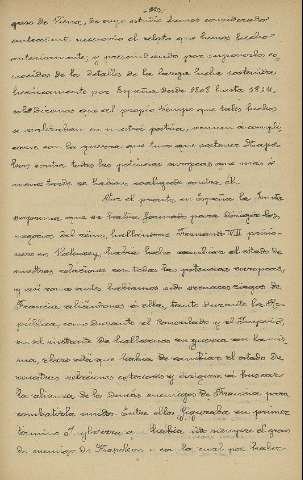 greso de Viena, de cuyo estudio hemos considerado
antecedente necesario el relato que hemos hecho
anteriormente, y prescindiendo por suponerlo co-
nocidos de los detalles de la larga lucha sostenida
heroicamente por España desde 1808 hasta 1814,
diremos que al propio tiempo que tales hechos
se realizaban en nuestra patria, venían a compli-
carse con la guerra que tuvo que sostener Napo-
leon contra todas las potencias europeas que más ó
menos tarde se habían coaligado contra él.
Por de pronto, en España la Junta
suprema que se había formado para dirigir los
negocios del reino, hallándose Fernando VII prisio-
nero en Valencey, había hecho cambiar el estado de
nuestras relaciones con todas las potencias europeas,
y así como antes habíamos sido enemigos de
Francia aliándonos á ella, tanto durante la Re-
pública, como durante el Consulado y el Imperio,
en el instante de hallarnos en guerra con la mis-
ma, claro está que había de cambiar el estado de
nuestras relaciones exteriores y dirigirse á buscar
la alianza de los demás enemigos de Francia para
combatirla unidos. Entre ellos figuraba en primer
término Inglaterra que había sido siempre el gran
enemigo de Napoleon y con la cual por haber